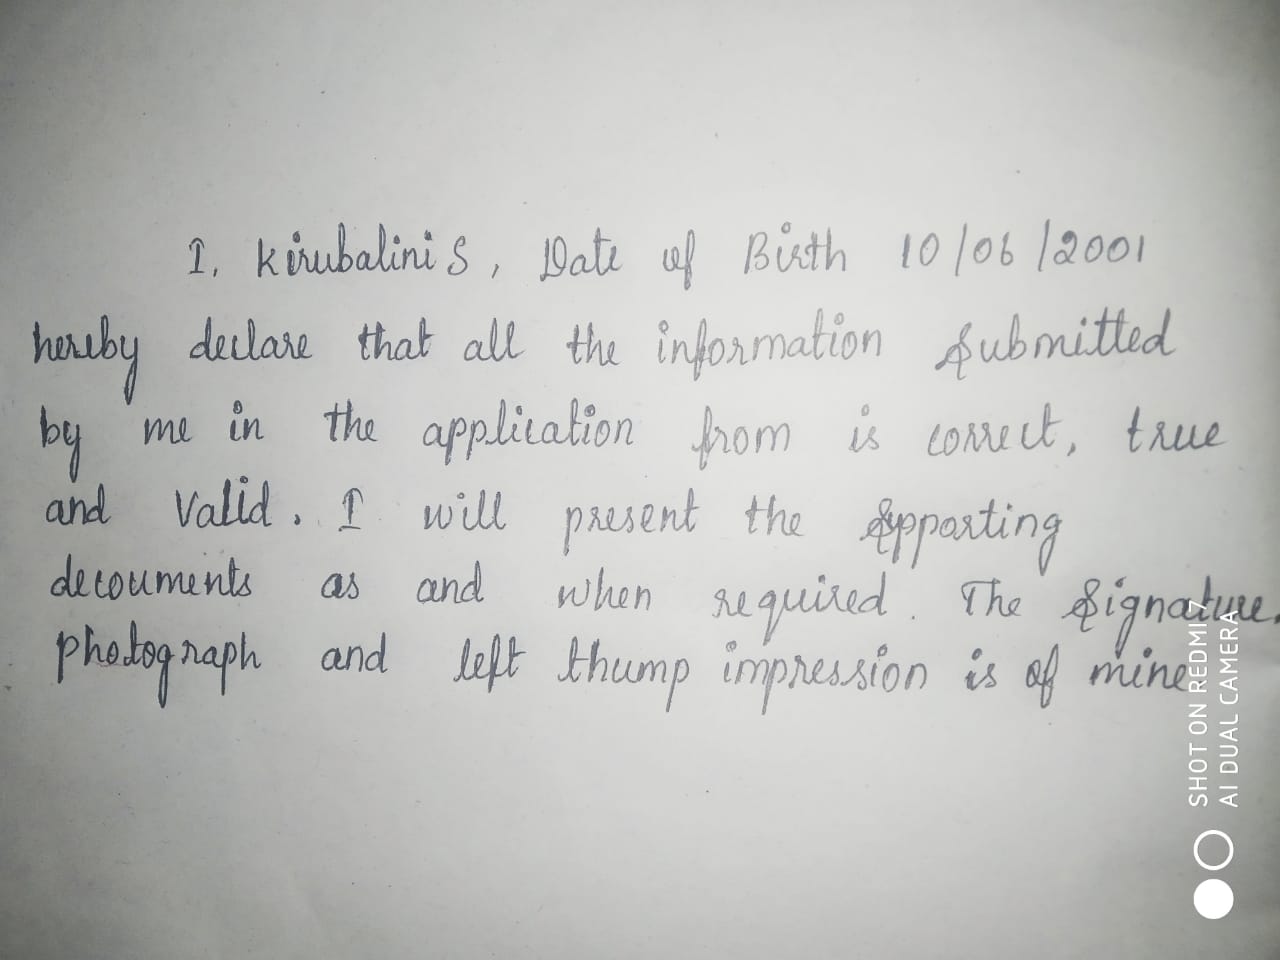 I, Kirubalini S, Date of Birth 10/06/2001
hereby declare that all the information Submitted
by me in the application from is correct, true
and Valid. I will present the Spporting
decouments as and when required. The Signature,
photograph and left thump impression is of mine
SHOT ON REDMI 7
AI DUAL CAMERA